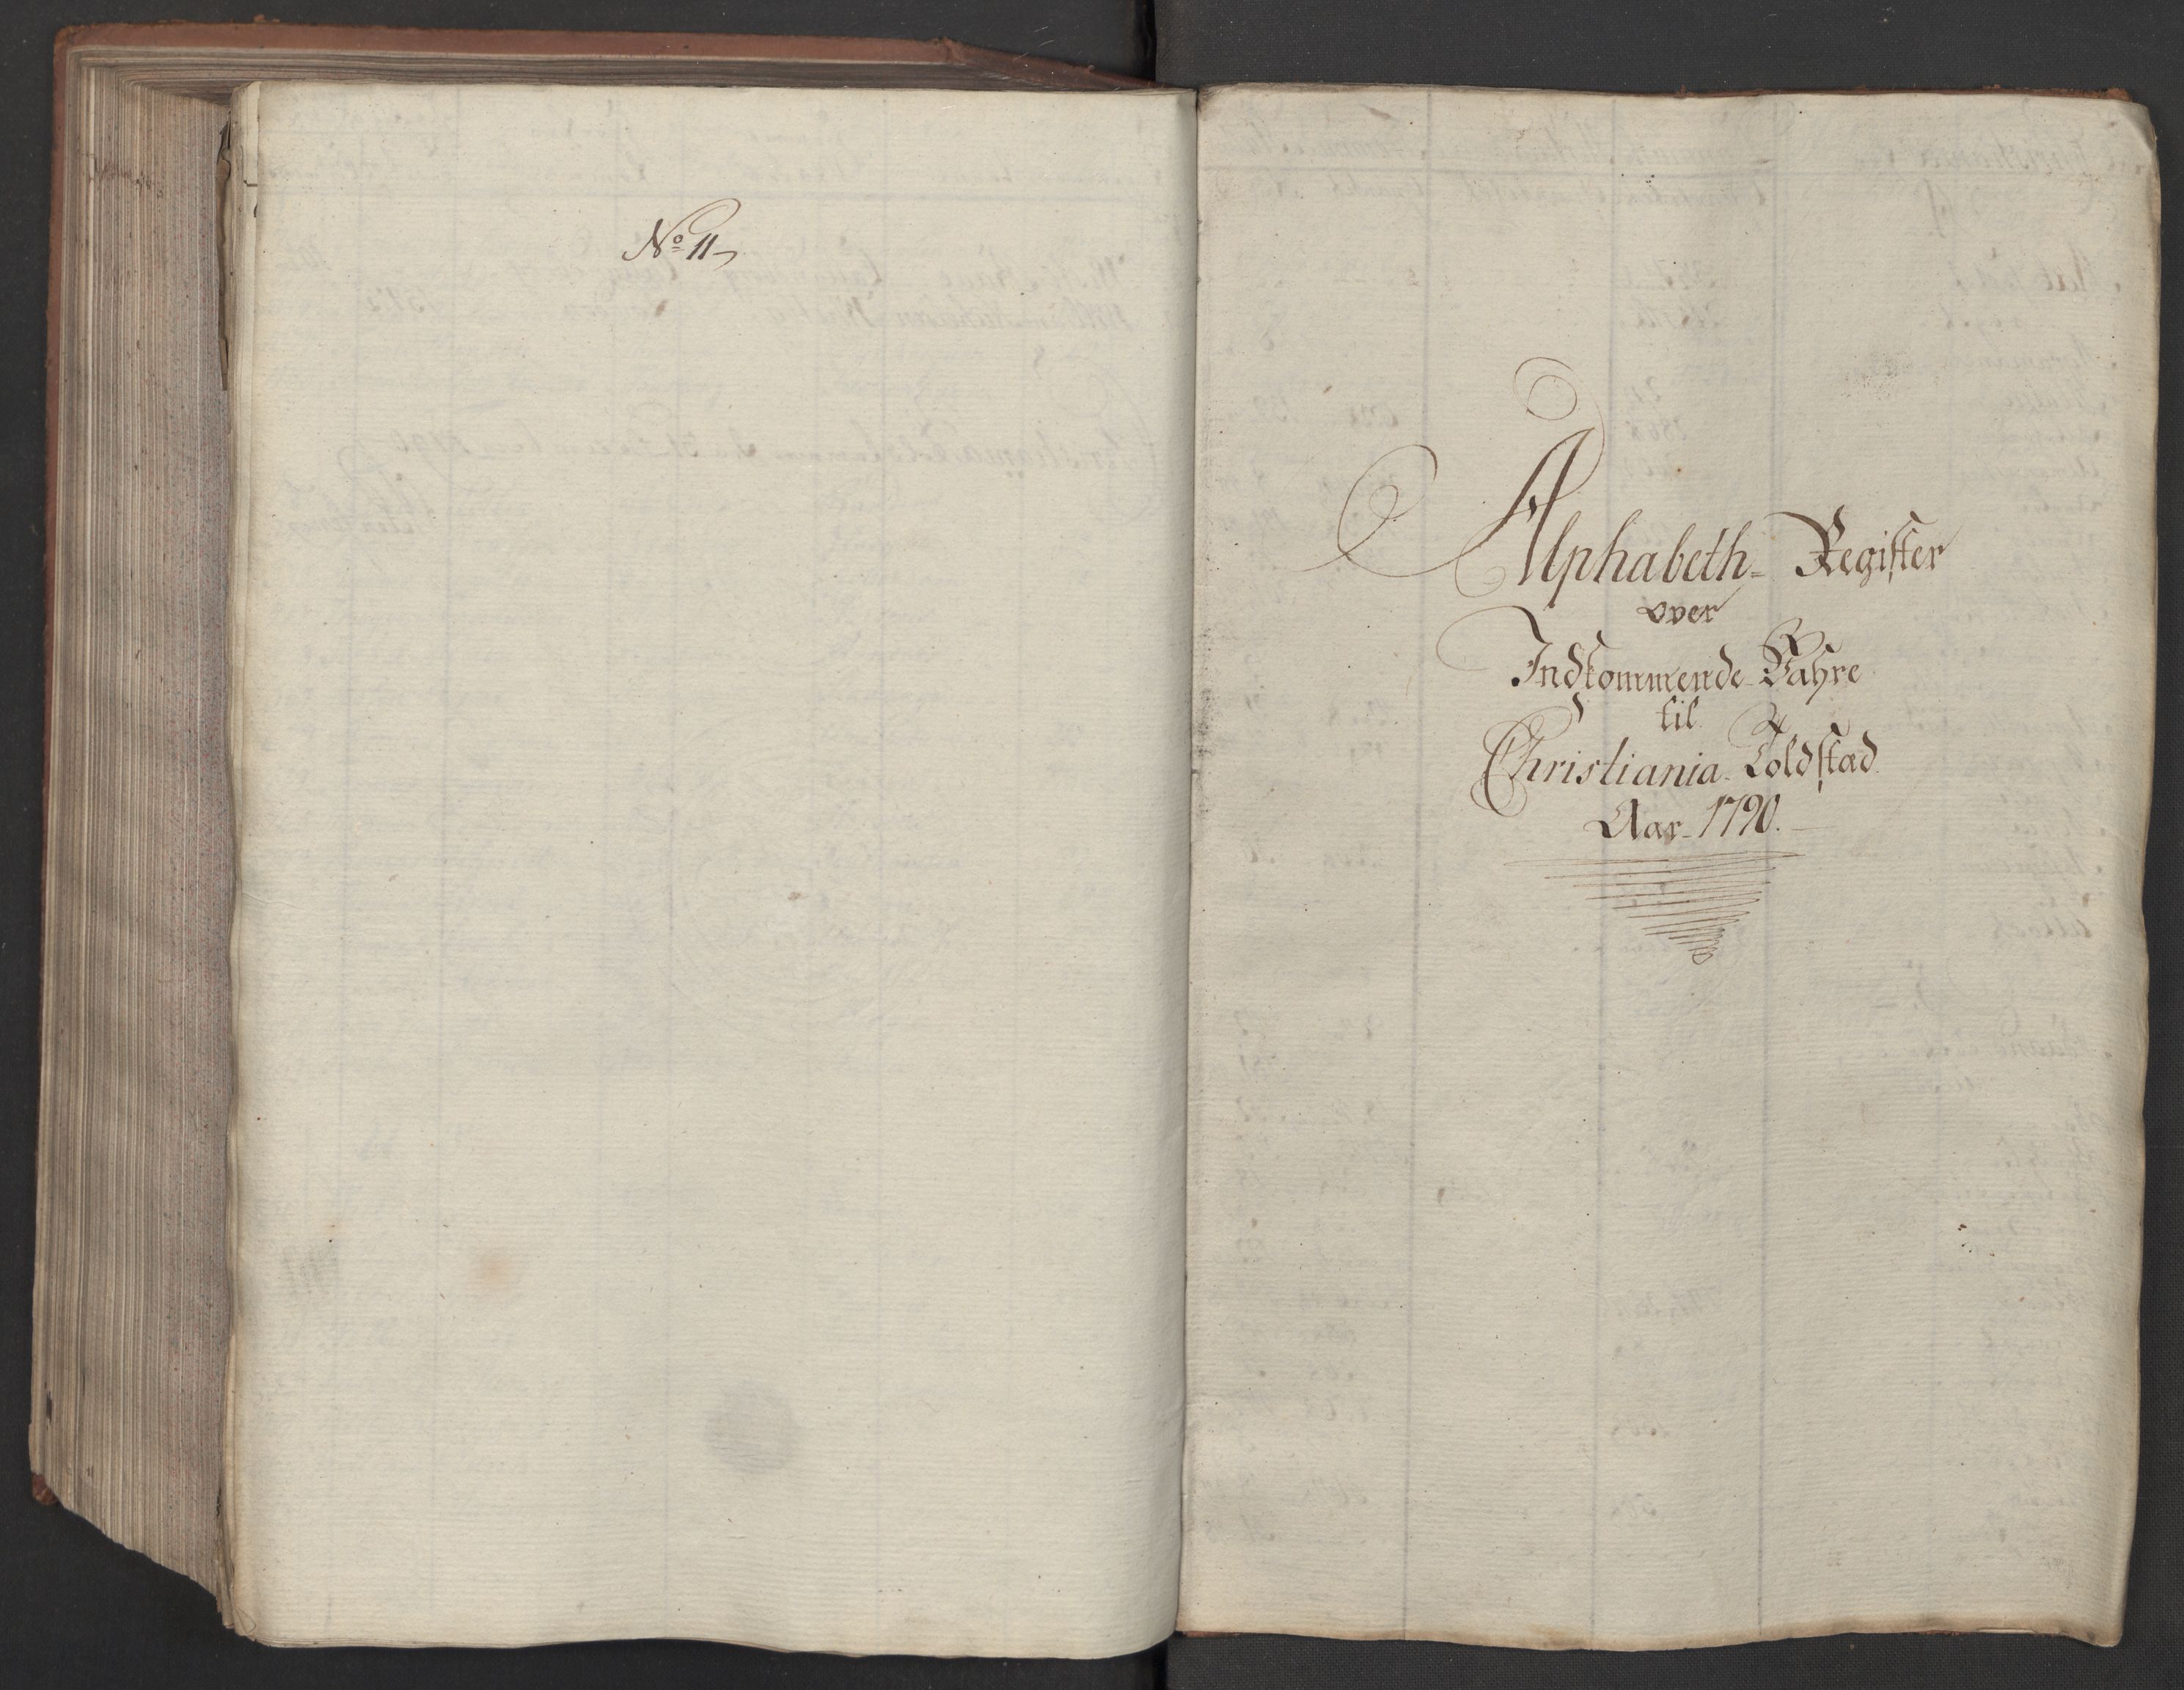 No 11
Alphabeth- Register
over
Indkommende Vahre
til
Christiania Toldstad
Aar 1790.